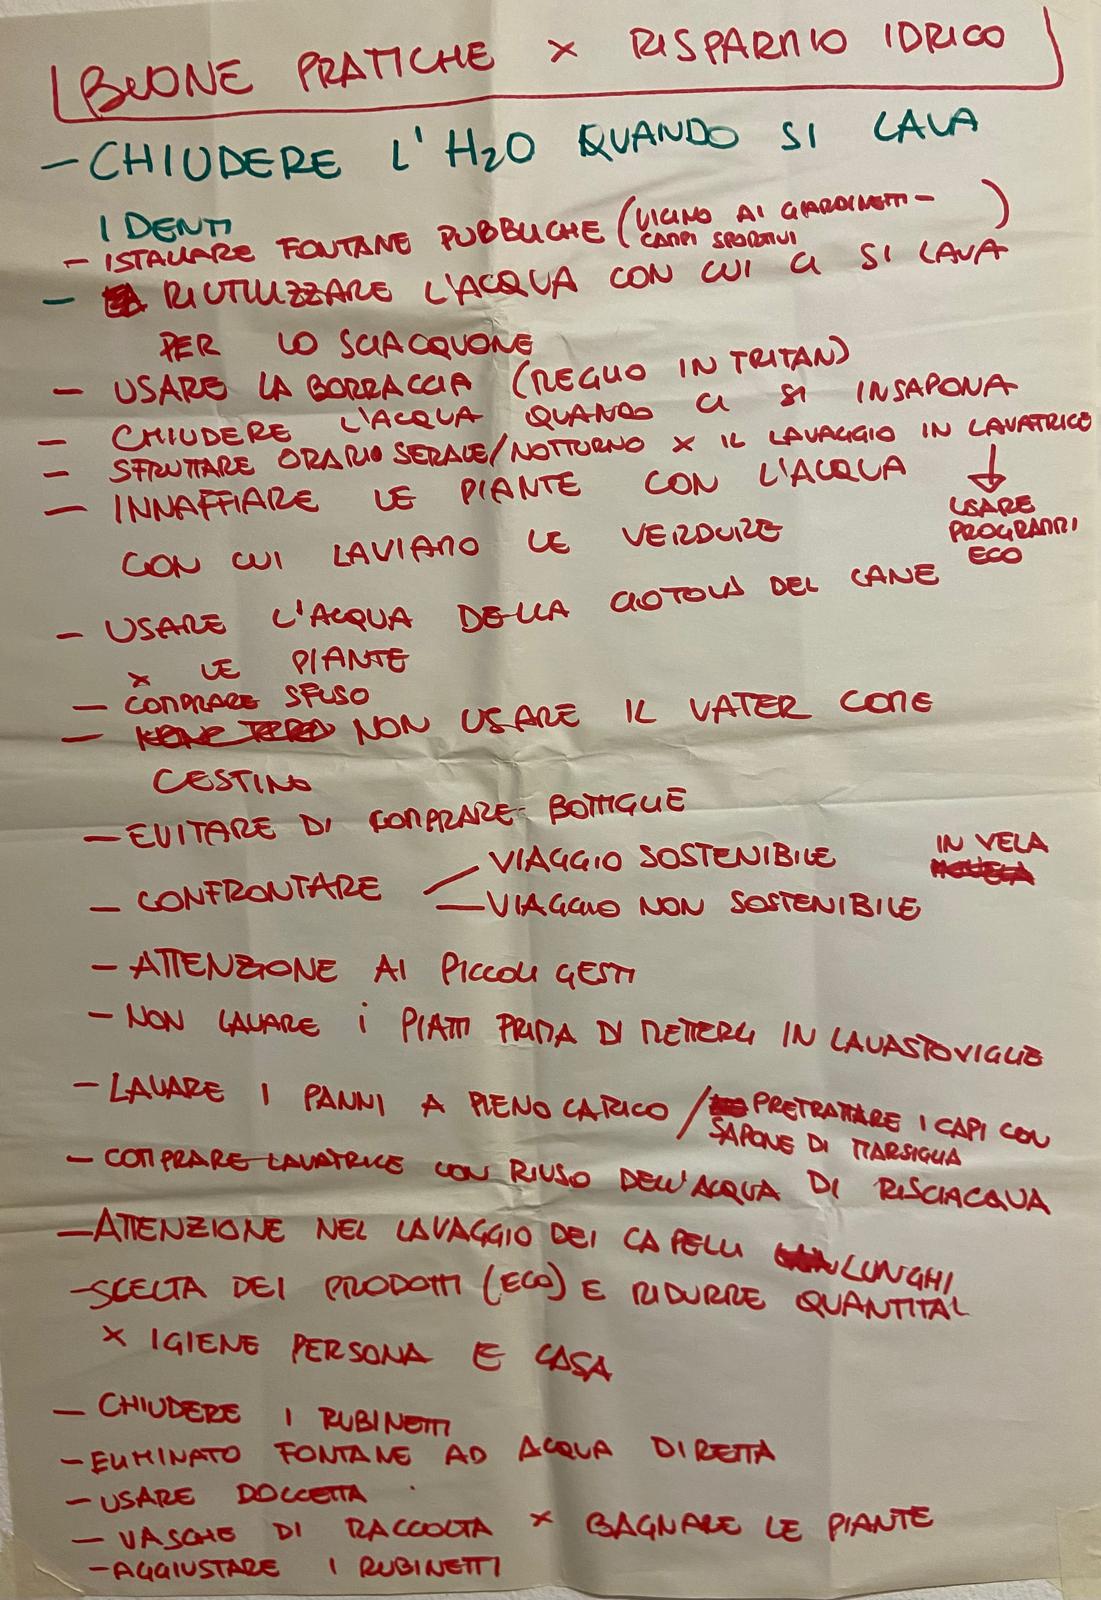 BUONE PRATICHE x RISPARMIO IDRICO
- CHIUDERE L'H2O QUANDO SI LAVA
I DENTI
- ISTALLARE FONTANE PUBBLICHE (VICINO AI GIARDINETTI -
CAMPI SPORTIVI )
- RIUTILIZZARE L'ACQUA CON CUI CI SI LAVA
PER LO SCIACQUONE
- USARE LA BORRACCIA (MEGLIO IN TRITAN)
- CHIUDERE L'ACQUA QUANDO CI SI INSAPONA
- SFRUTTARE ORARIO SERALE/NOTTURNO x IL LAVAGGIO IN LAVATRICE
↓
USARE
PROGRAMMI
ECO
- INNAFFIARE LE PIANTE CON L'ACQUA
CON CUI LAVIAMO LE VERDURE
- USARE L'ACQUA DELLA CIOTOLA DEL CANE
x LE PIANTE
- COMPRARE SFUSO
- NON USARE IL VATER COME
CESTINO
- EVITARE DI COMPRARE BOTTIGLIE
- CONFRONTARE
VIAGGIO SOSTENIBILE
IN VELA
VIAGGIO NON SOSTENIBILE
- ATTENZIONE AI PICCOLI GESTI
- NON LAVARE i PIATTI PRIMA DI METTERLI IN LAVASTOVIGLIE
- LAVARE I PANNI A PIENO CARICO / PRETRATTARE I CAPI CON
SAPONE DI MARSIGLIA
- COMPRARE LAVATRICE CON RIUSO DELL'ACQUA DI RISCIACQUA
- ATTENZIONE NEL LAVAGGIO DEI CAPELLI LUNGHI
- SCELTA DEI PRODOTTI (ECO) E RIDURRE QUANTITA'
x IGIENE PERSONA E CASA
- CHIUDERE I RUBINETTI
- ELIMINATO FONTANE AD ACQUA DIRETTA
- USARE DOCCETTA
- VASCHE DI RACCOLTA x BAGNARE LE PIANTE
- AGGIUSTARE I RUBINETTI